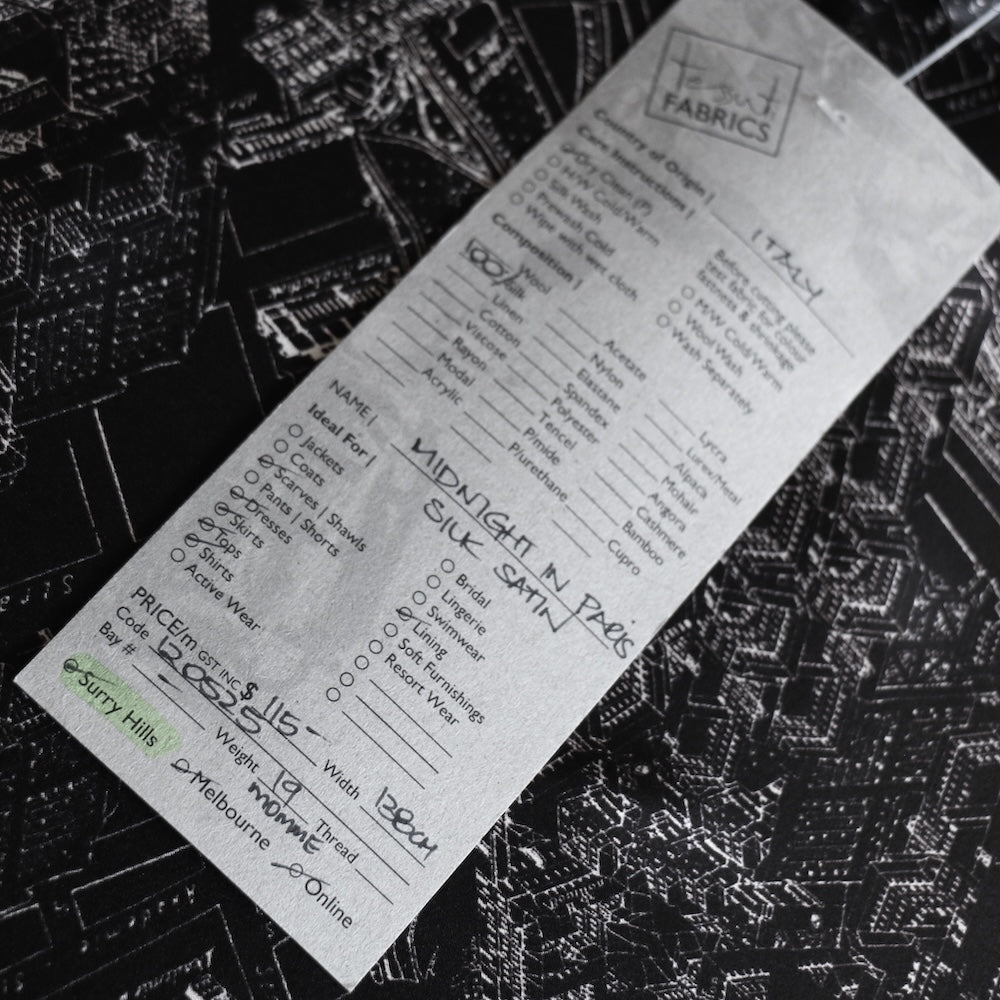 tessuti
FABRICS
Country of Origin | ITALY
Care Instructions |
Dry Clean (P)
M/W Cold/Warm
Silk Wash
Prewash Cold
Wipe with wet cloth
Before cutting please
test fabric for colour
fastness & shrinkage
M/W Cold/Warm
Wool Wash
Wash Separately
Composition |
Wool
100/ Silk
Linen
Cotton
Viscose
Rayon
Modal
Acrylic
Acetate
Nylon
Elastane
Spandex
Polyester
Tencel
P/mide
P/urethane
Lycra
Lurex/Metal
Alpaca
Mohair
Angora
Cashmere
Bamboo
Cupro
NAME | MIDNIGHT IN PARIS
SILK SATIN
Ideal For |
Jackets
Coats
Scarves | Shawls
Pants | Shorts
Dresses
Skirts
Tops
Shirts
Active Wear
Bridal
Lingerie
Swimwear
Lining
Soft Furnishings
Resort Wear
PRICE/m GST INC $ 115-
Code 120525 Width 138CM
Bay # Weight 19 MOMME Thread
Surry Hills Melbourne Online